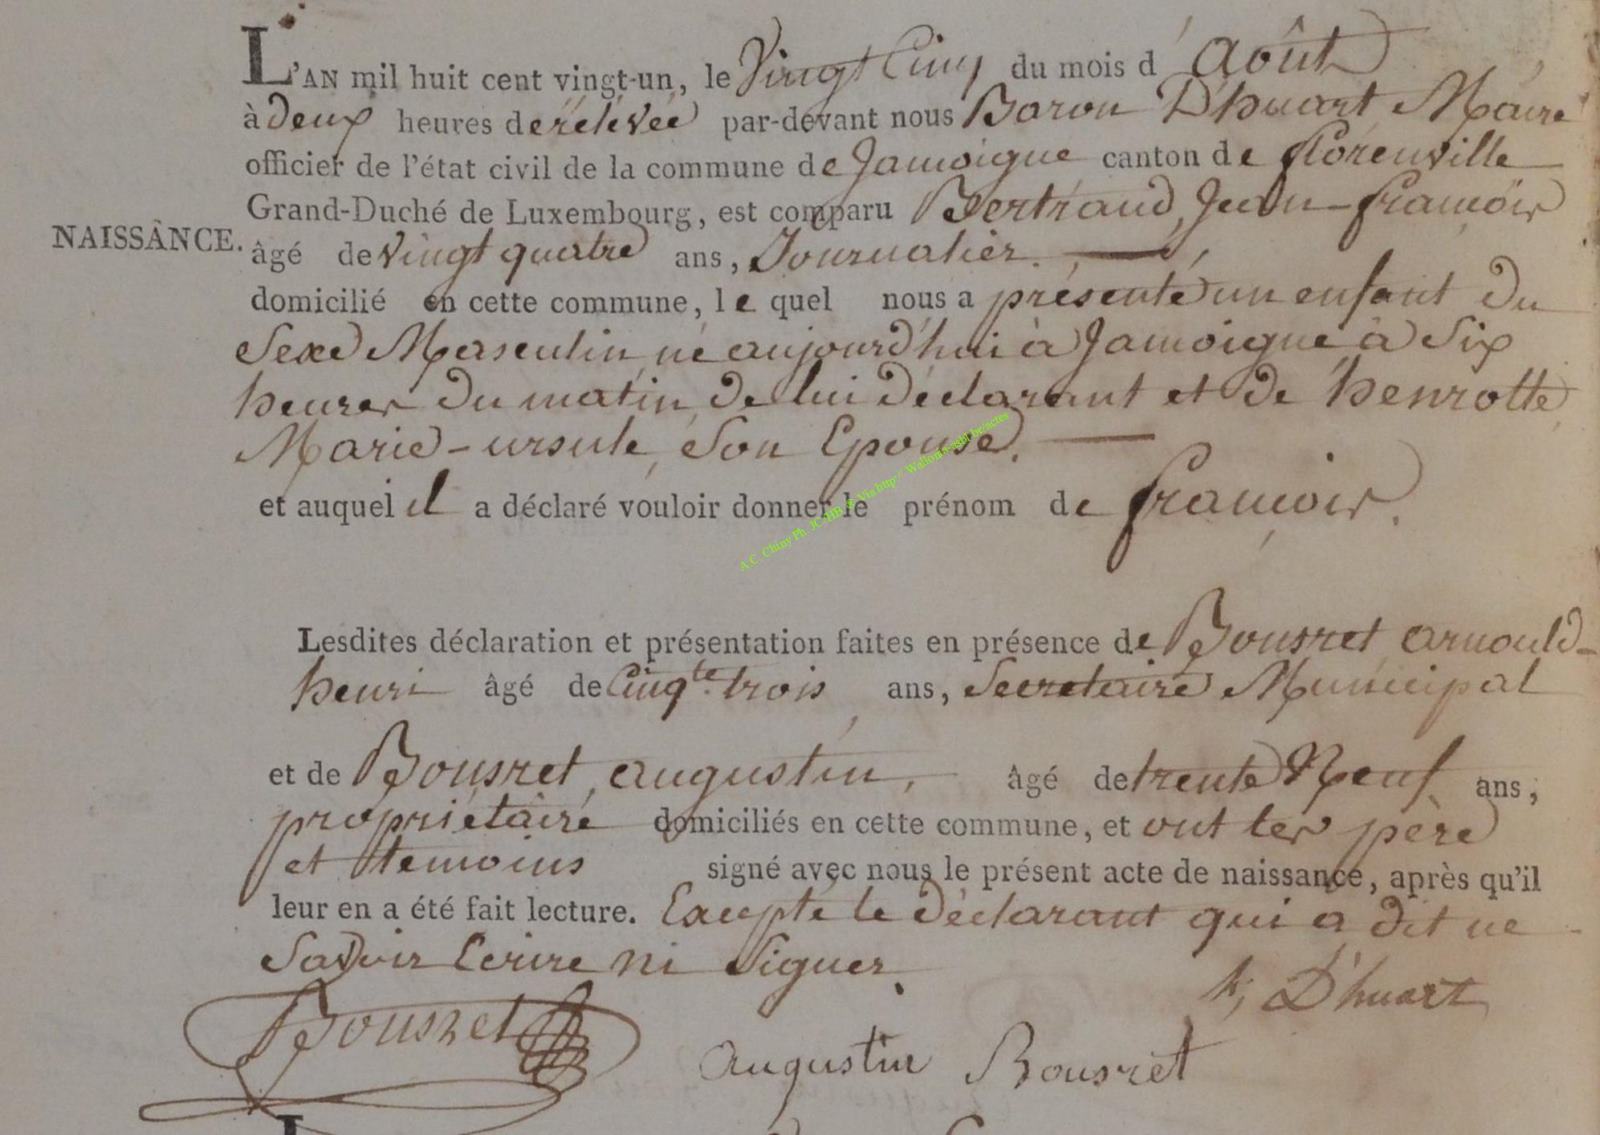 L'AN mil huit cent vingt-un, le Vingt Cinq du mois d' Août
à deux heures de rélévée par-dévant nous Baron D'huart Maire
officier de l'état civil de la commune de Jamoigne canton de florenville
Grand-Duché de Luxembourg, est comparu Bertrand Jean-françois
NAISSANCE. âgé de vingt quatre ans, Journalier.
domicilié en cette commune, le quel nous a présenté un enfant du
Sexe Masculin, né aujourd'hui à Jamoigne, à Six
heures du matin, de lui déclarant et de henrotte
Marie-ursule, Son Epouse.
et auquel il a déclaré vouloir donner le prénom de françois.
A.C. Chiny Ph. JC-HB &
Lesdites déclaration et présentation faites en présence de Bousret arnould-
henri âgé de Cinqte. trois ans, Secretaire Municipal
et de Bousret, augustin, âgé de trente Neuf ans,
propriétaire domiciliés en cette commune, et ont les père
et temoins signé avec nous le présent acte de naissance, après qu'il
leur en a été fait lecture. Excepté le déclarant qui a dit ne
Savoir Ecrire ni Signer.
D'huart
Bousret
augustin Bousret